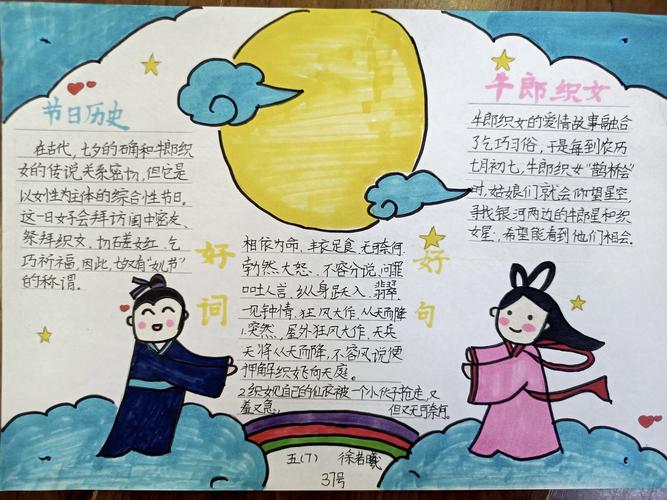 节日历史
在古代，七夕的确和牛郎织
女的传说关系密切，但它是
以女性为主体的综合性节日。
这一日女子会拜访闺中密友、
祭拜织女、切磋女红、乞
巧祈福，因此，七夕有“女儿节”
的称谓。
好词
相依为命、丰衣足食、无可奈何、
勃然大怒、不容分说、问罪
口吐人言、纵身跃入、翡翠、
一见钟情、狂风大作、从天而降
好句
1.突然，屋外狂风大作，天兵
天将从天而降，不容分说便
押解织女飞向天庭。
2.织女见自己的仙衣被一个小伙子抢走，又
羞又急，但又无可奈何。
牛郎织女
牛郎织女的爱情故事融合
了乞巧习俗，于是每到农历
七月初七，牛郎织女“鹊桥会”
时，姑娘们就会仰望星空，
寻找银河两边的牛郎星和织
女星，希望能看到他们相会。
五(7) 徐若曦
37号